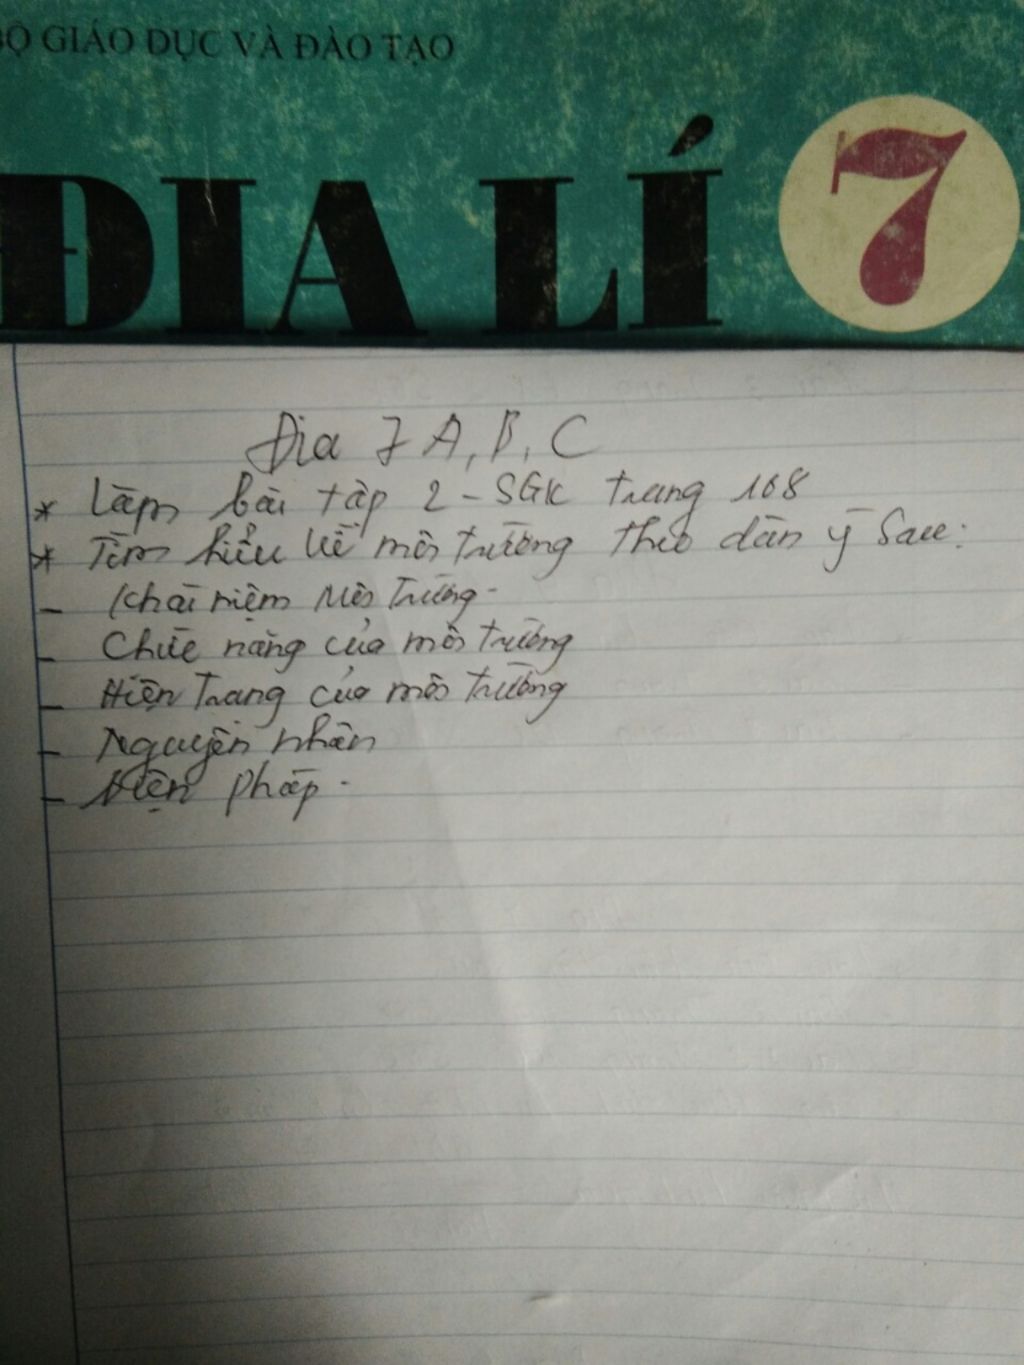 BỘ GIÁO DỤC VÀ ĐÀO TẠO
ĐỊA LÍ 7
Địa 7 A, B, C
* Làm bài tập 2 - SGK trang 108
* Tìm hiểu về môi trường theo dàn ý sau:
- Khái niệm Môi Trường.
- Chức năng của môi trường
- Hiện Trạng của môi trường
- Nguyên nhân
- Biện pháp.